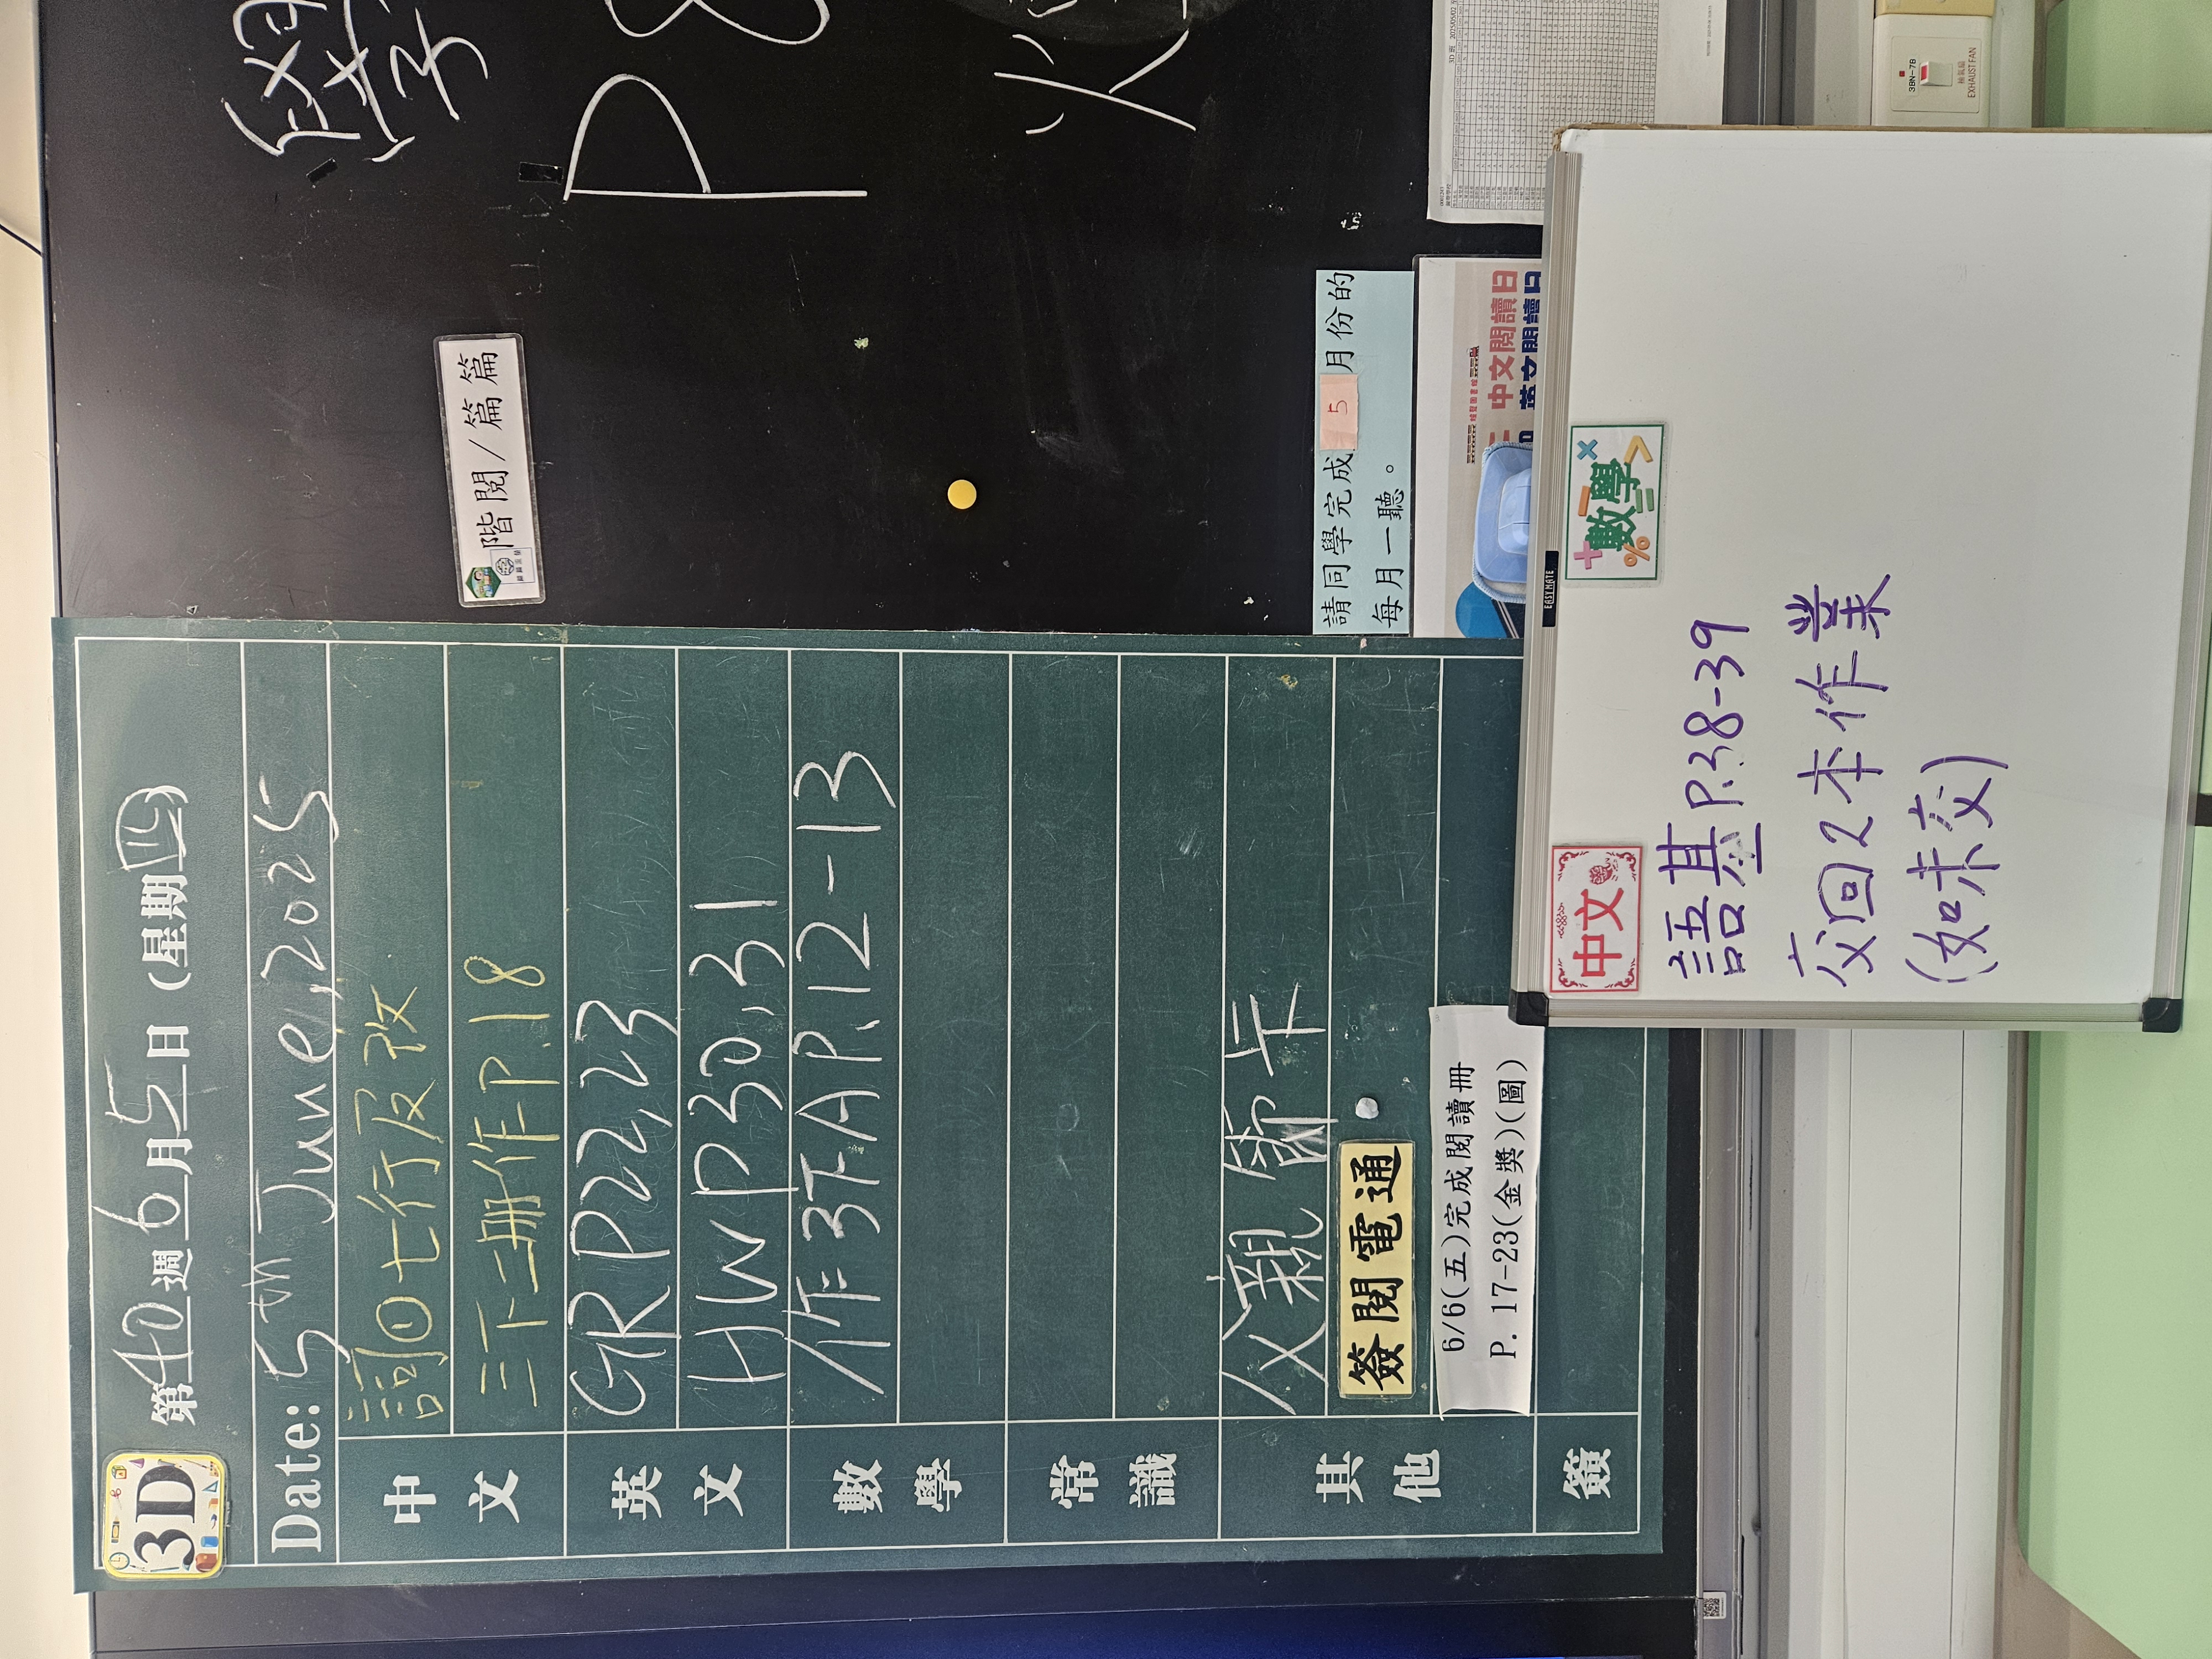 3D
第40週6月5日(星期四)
Date: 5th June, 2025
中文
詞①七行及改
三下二冊作P.18
英文
GRP22,23
HWP30,31
數學
作3下A P.12-13
常識
其他
父親節卡
簽閱電通
6/6(五)完成閱讀冊
P. 17-23(金獎)(圖)
簽
階閱/篇篇
學
P
請同學完成5月份的
每月一聽。
中文閱讀日
英文閱讀日
3D 班 2025/05/02
EASYMATE
中文
數學
語基P.38-39
交回2本作業
(如未交)
3BN-7B
抽氣扇
EXHAUST FAN